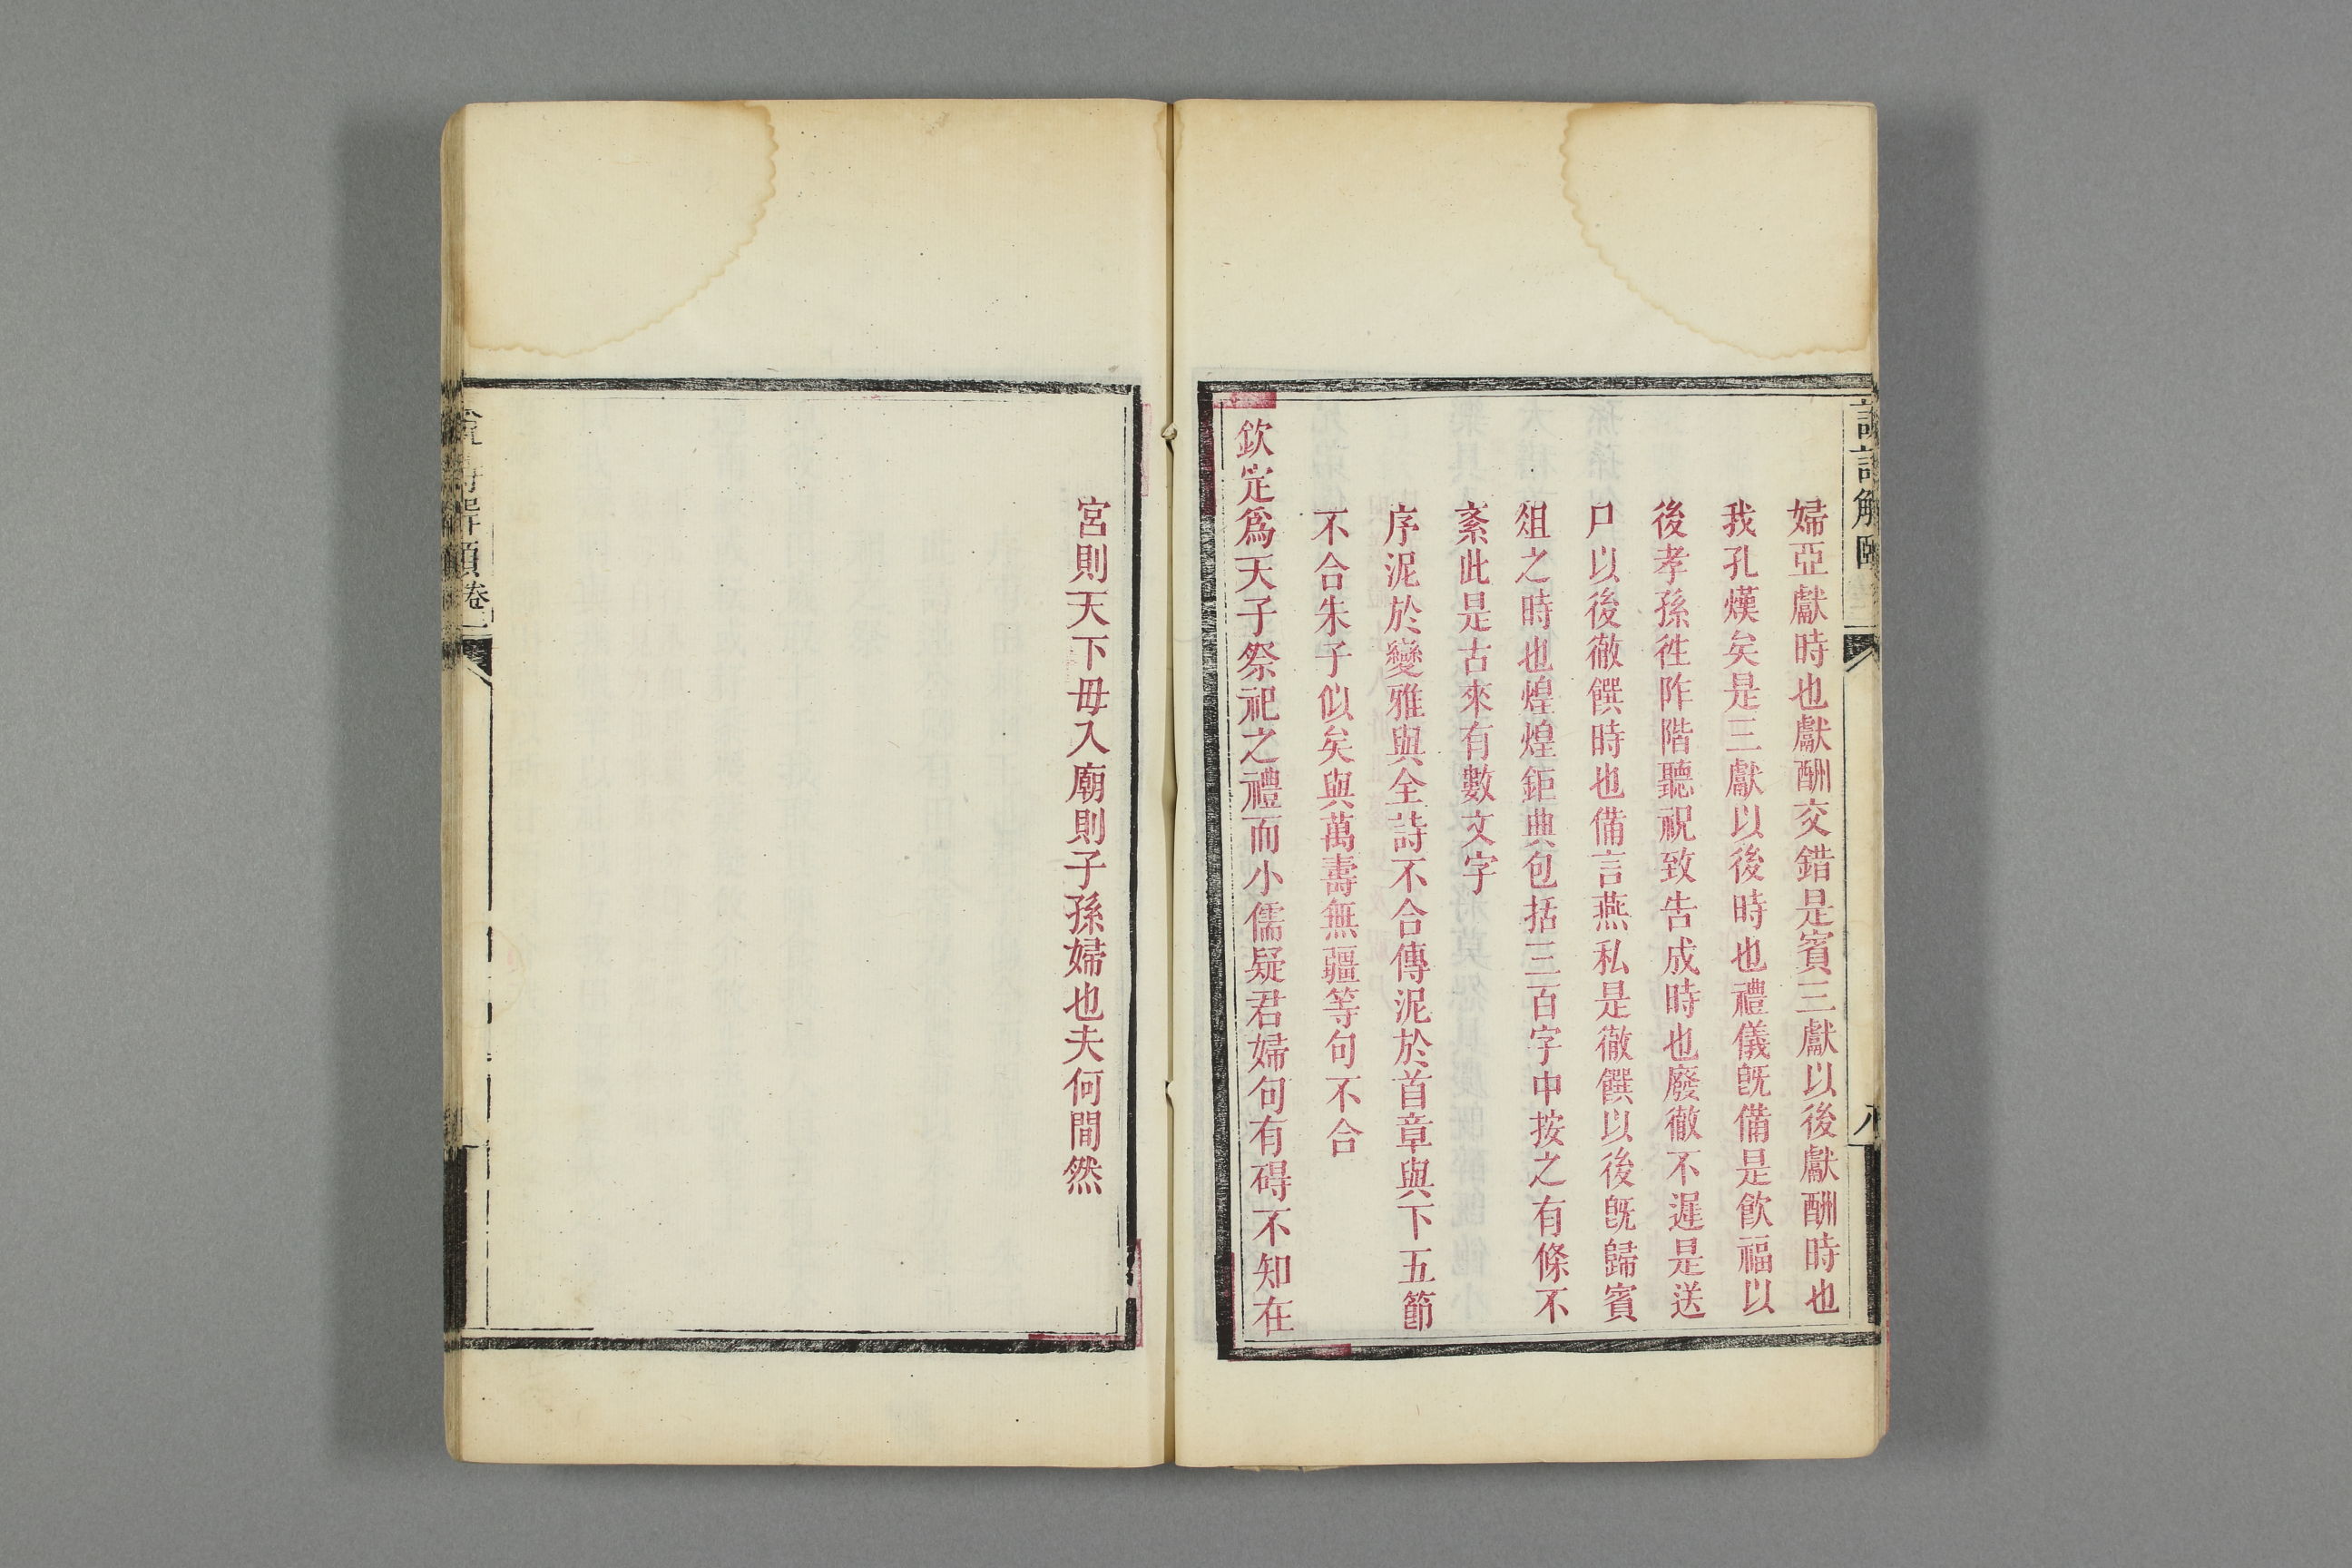 婦亞獻時也獻酬交錯是賓三獻以後獻酬時也
我孔熯矣是三獻以後時也禮儀旣備是飮福以
後孝孫徃阼階聽祝致告成時也廢徹不遲是送
尸以後徹饌時也備言燕私是徹饌以後旣歸賓
俎之時也煌煌鉅典包括三百字中按之有條不
紊此是古來有數文字
序泥於變雅與全詩不合傳泥於首章與下五節
不合朱子似矣與萬壽無疆等句不合
欽定爲天子祭祀之禮而小儒疑君婦句有碍不知在
宮則天下毋入廟則子孫婦也夫何間然